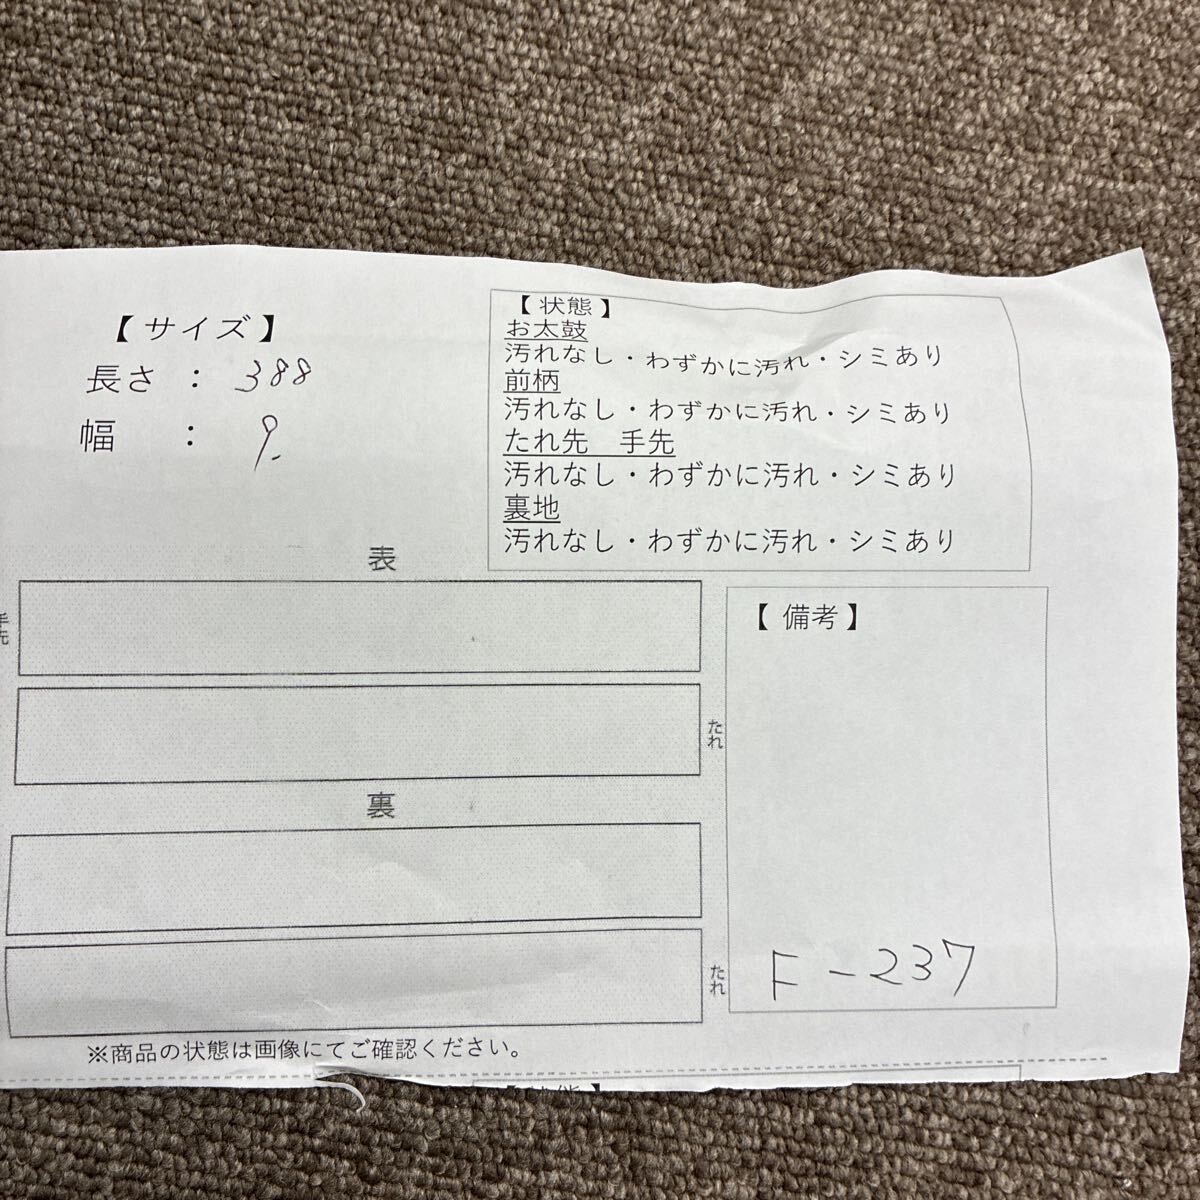 【 サイズ 】
長さ : 388
幅 : 9.
【 状態 】
お太鼓
汚れなし・わずかに汚れ・シミあり
前柄
汚れなし・わずかに汚れ・シミあり
たれ先 手先
汚れなし・わずかに汚れ・シミあり
裏地
汚れなし・わずかに汚れ・シミあり
表
手先
たれ
裏
たれ
【 備考 】
F-237
※商品の状態は画像にてご確認ください。